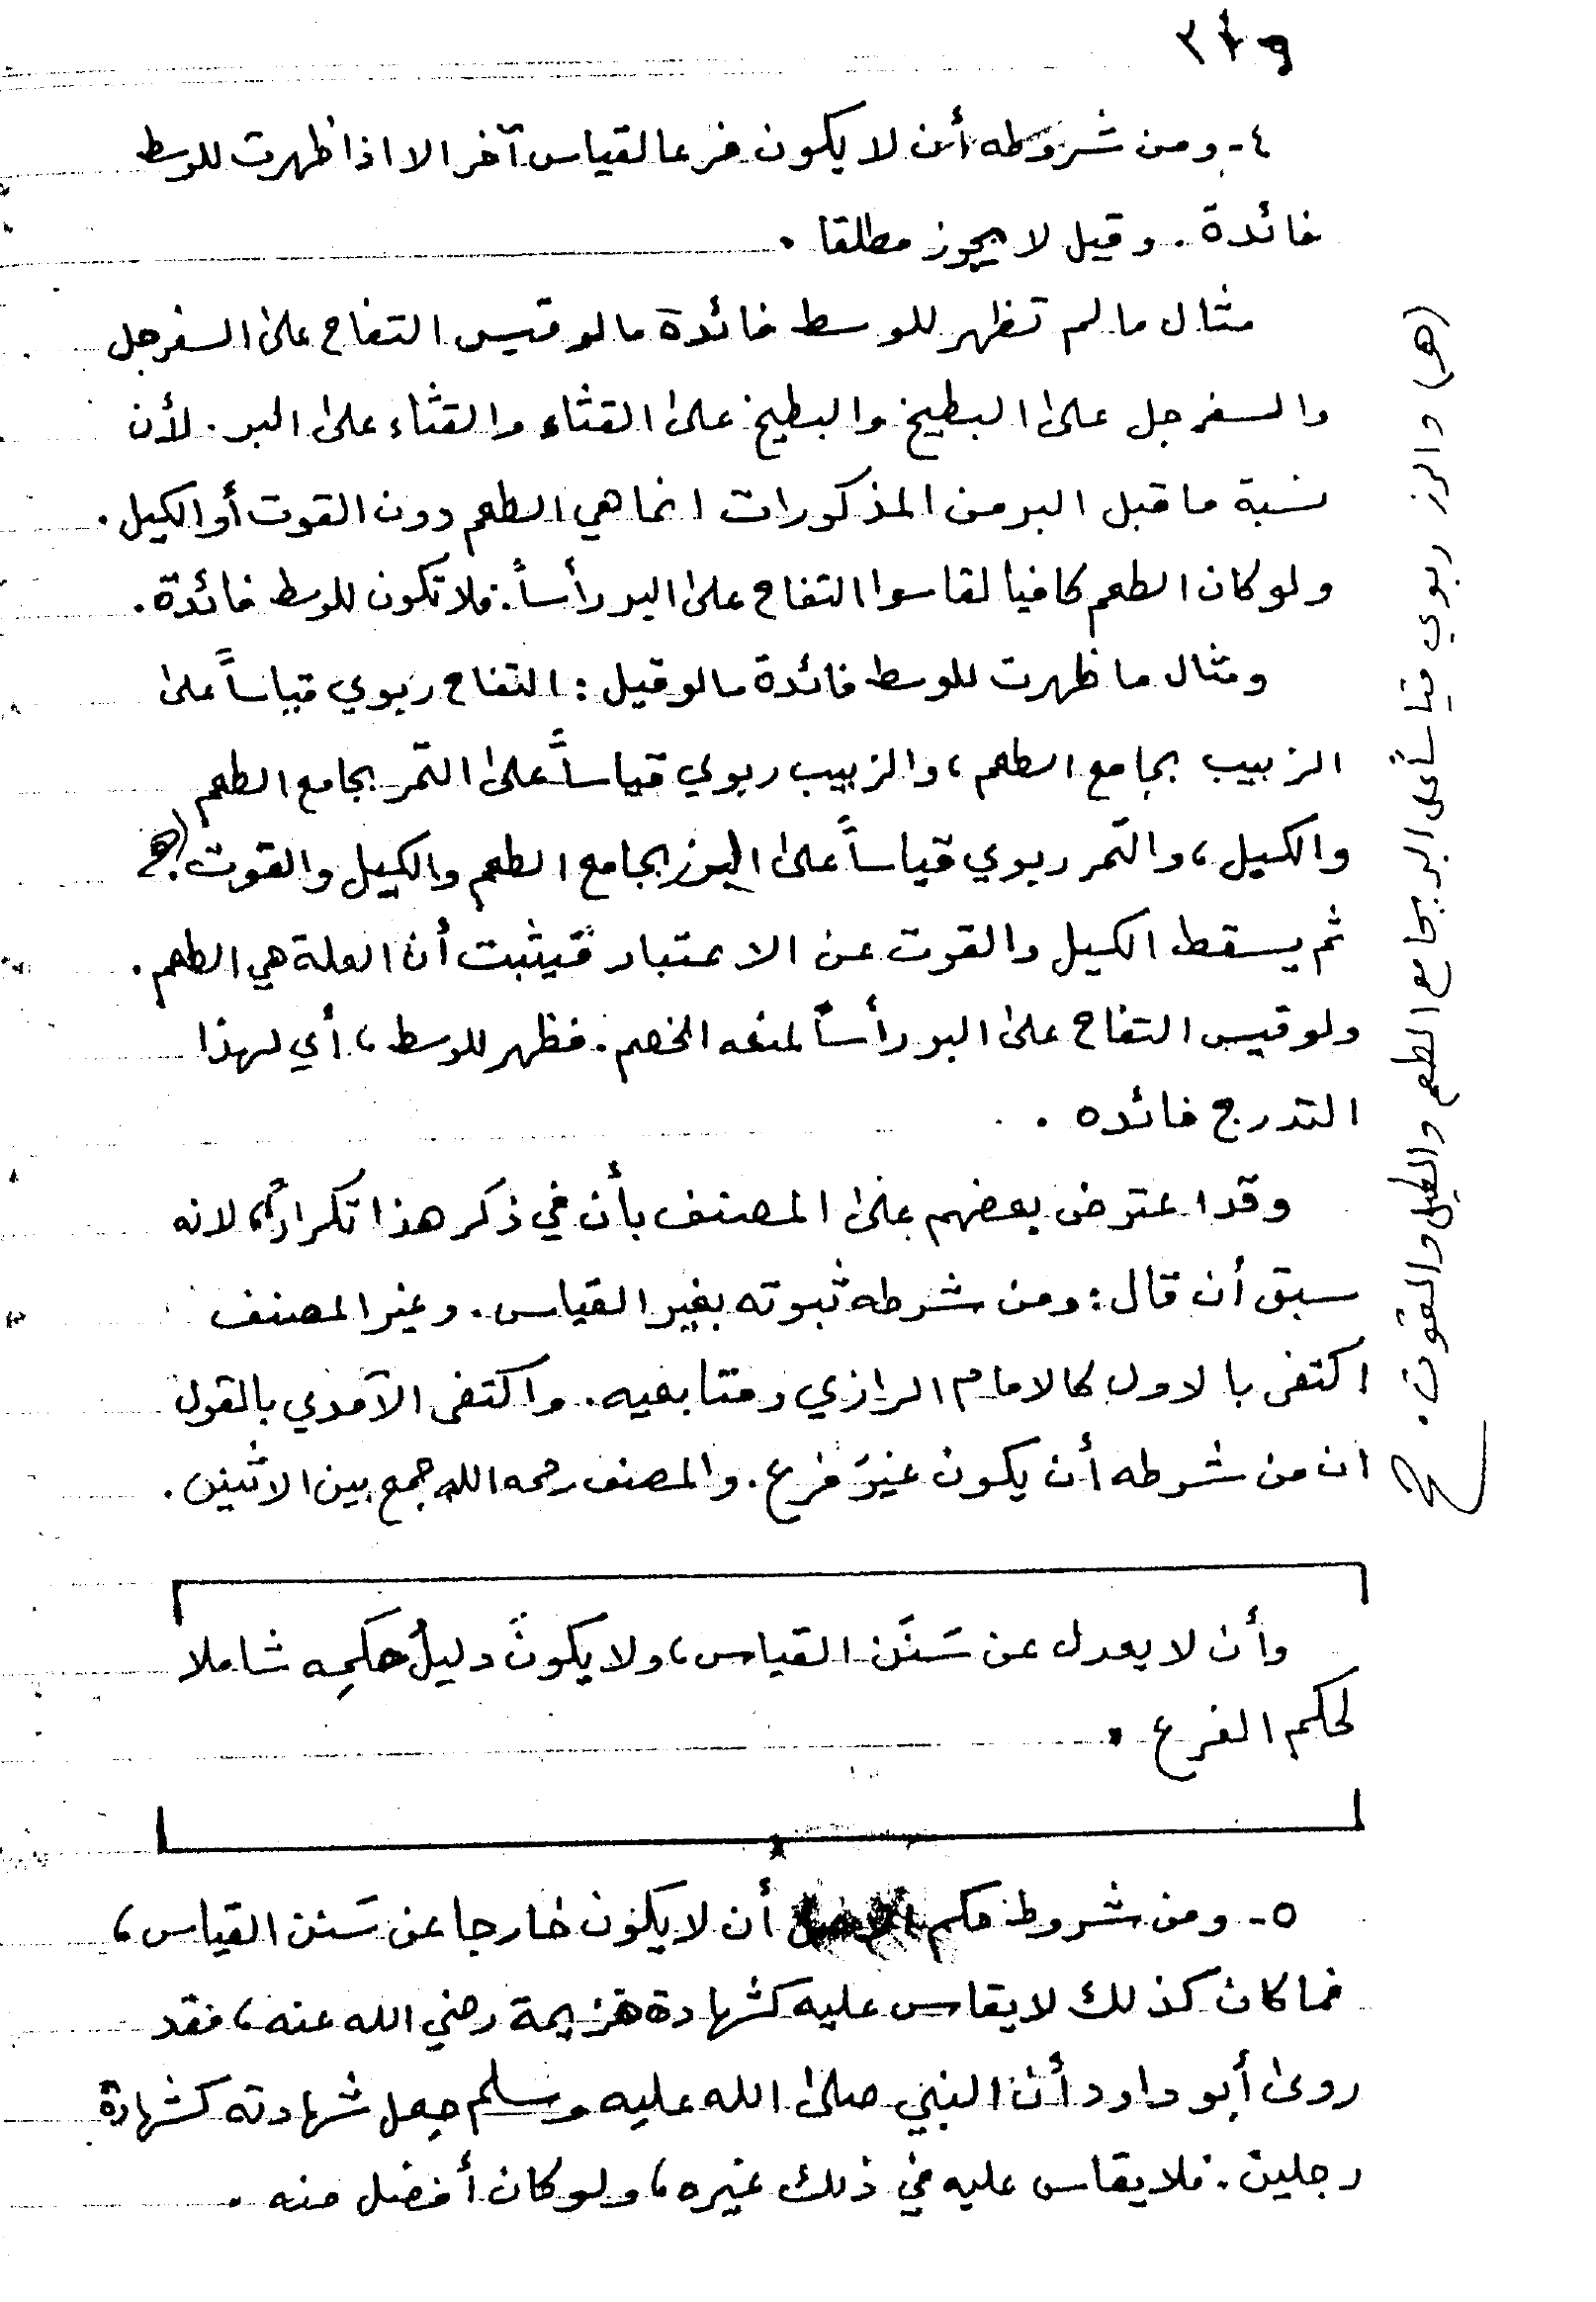 ٣٤٩
٤- ومن شروطه أن لا يكون فرعا لقياس آخر الا اذا ظهرت للوسط
فائدة . وقيل لا يجوز مطلقا .
مثال ما لم تظهر للوسط فائدة ما لو قيس التفاح على السفرجل
والسفرجل على البطيخ والبطيخ على القثاء والقثاء على البر . لأن
نسبة ما قبل البر من المذكورات انما هي الطعم دون القوت أو الكيل .
ولو كان الطعم كافيا لقاسوا التفاح على البر رأساً . فلا تكون للوسط فائدة .
ومثال ما ظهرت للوسط فائدة ما لو قيل : التفاح ربوي قياساً على
الزبيب بجامع الطعم ، والزبيب ربوي قياساً على التمر بجامع الطعم
والكيل ، والتمر ربوي قياساً على الرز بجامع الطعم والكيل والقوت . (هـ)
ثم يسقط الكيل والقوت عن الاعتبار فيثبت أن العلة هي الطعم .
ولو قيس التفاح على البر رأساً لمنعه الخصم . فظهر للوسط ، أي لهذا
التدرج فائده .
وقد اعترض بعضهم على المصنف بأن في ذكر هذا تكراراً ، لانه
سبق أن قال : ومن شرطه ثبوته بغير القياس . وغير المصنف
اكتفى بالاول كالامام الرازي ومتابعيه . واكتفى الآمدي بالقول
ان من شرطه أن يكون غيرَ فرع . والمصنف رحمه الله جمع بين الاثنين .
وأن لا يعدل عن سَنَن القياس ، ولا يكونَ دليلُ حكمِه شاملا
لحكم الفرع .
٥- ومن شروط حكم أن لا يكون خارجا عن سَنن القياس ،
فما كان كذلك لا يقاس عليه كشهادة خزيمة رضي الله عنه ، فقد
روى أبو داود أن النبي صلى الله عليه وسلم جعل شهادته كشهادة
رجلين . فلا يقاس عليه في ذلك غيره ، ولو كان أفضل منه .
(هـ) والرز ربوي قياساً على البر بجامع الطعم والكيل والقوت .